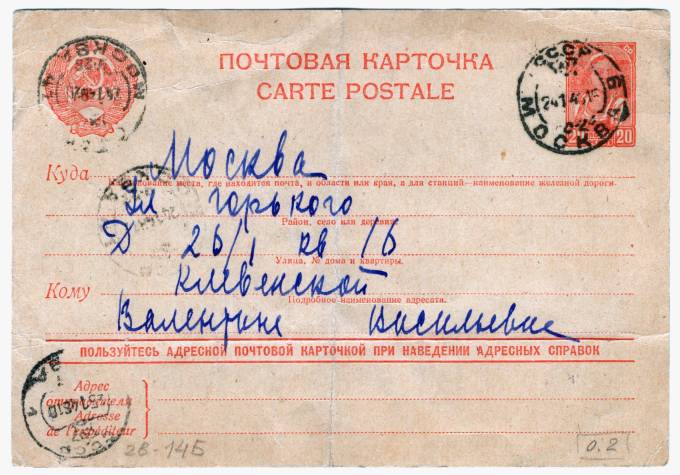 ПОЧТОВАЯ КАРТОЧКА
CARTE POSTALE
СССР
МОСКВА
20
Куда Москва
Наименование места, где находится почта, и области или края, а для станций—наименование железной дороги.
Ул горького
Район, село или деревня
Д 26/1 кв
Улица, № дома и квартиры.
Кому Клевенской
Подробное наименование адресата.
Валентине Васильевне
ПОЛЬЗУЙТЕСЬ АДРЕСНОЙ ПОЧТОВОЙ КАРТОЧКОЙ ПРИ НАВЕДЕНИИ АДРЕСНЫХ СПРАВОК
Адрес
отправителя
Adresse
de l'expéditeur
28-14Б
0.2